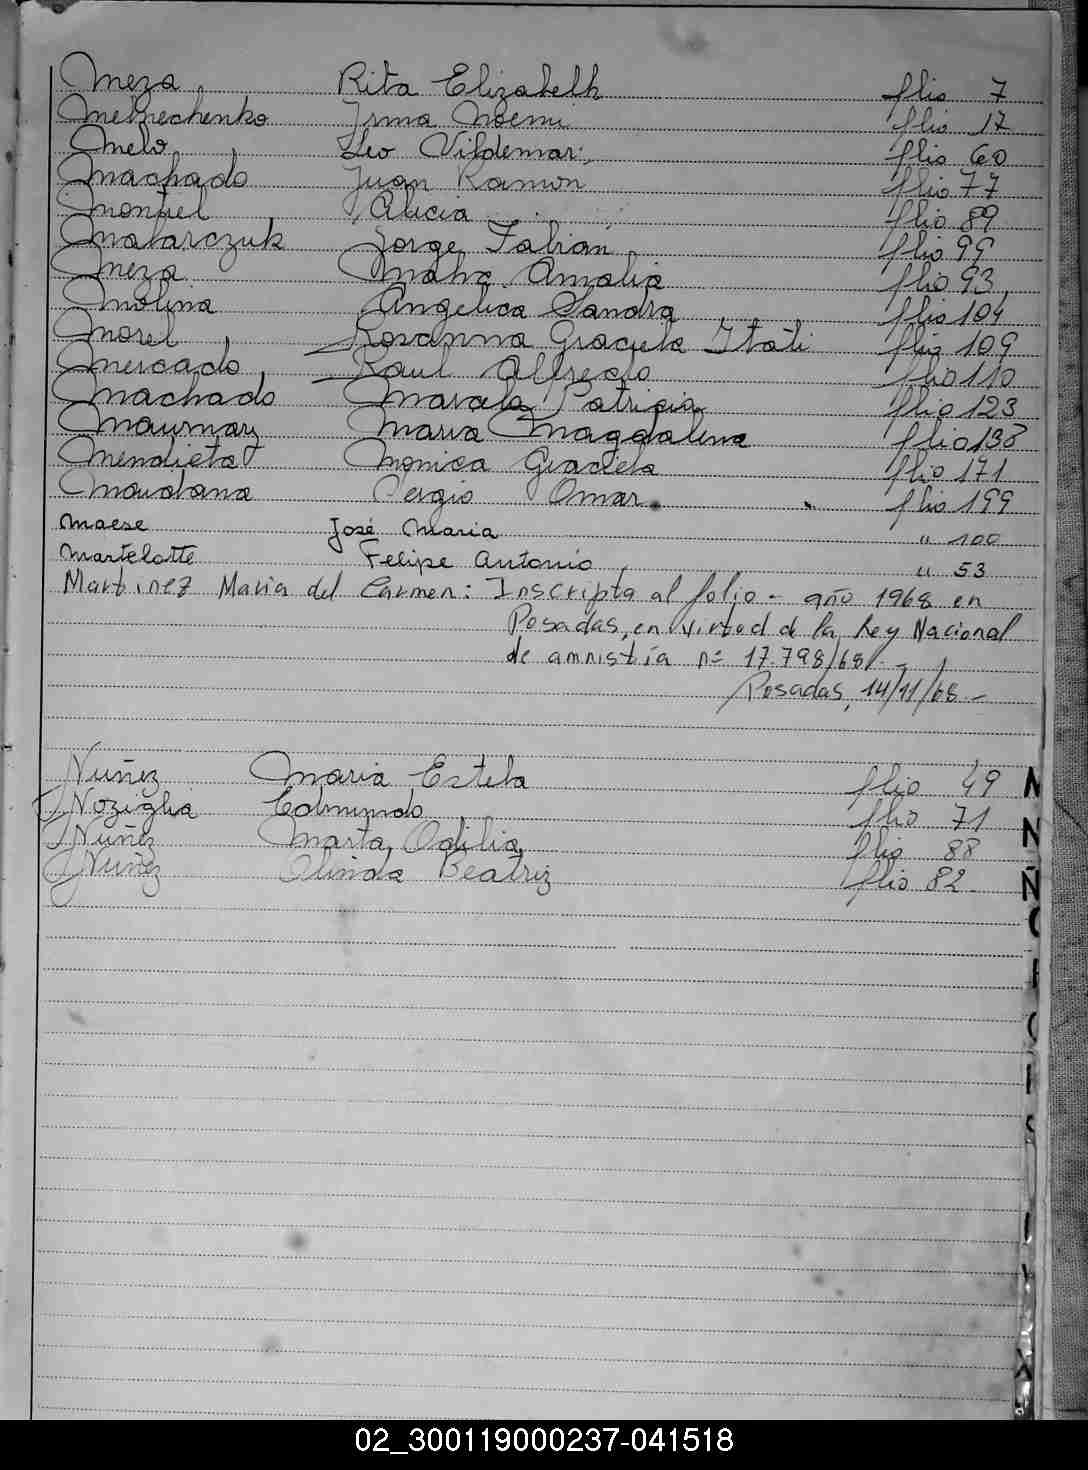 Meza Rita Elizabeth flio 7
Melnechenko Irma Noemi flio 17
Melo Leo Vildemar flio 60
Machado Juan Ramon flio 77
Montiel Alicia flio 89
Matarczuk Jorge Fabian flio 99
Meza Maria Amalia flio 93
Molina Angelica Sandra flio 104
Morel Rosanna Graciela Itati flio 109
Mercado Raul Alfredo flio 110
Machado Marcela Patricia flio 123
Maria Magdalena flio 138
Mendieta Monica Graciela flio 171
Sergio Omar flio 199
Maese José Maria " 100
Martelotte Felipe Antonio " 53
Martinez Maria del Carmen: Inscripta al folio - año 1968 en
Posadas, en virtud de la Ley Nacional
de amnistía nº 17.798/68. -
Posadas, 14/11/68 -
Nuñez Maria Estela flio 49
Noziglia Edmundo flio 71
Nuñez Marta Odilia flio 88
Nuñez Olinda Beatriz flio 82
N
N
Ñ
02_300119000237-041518